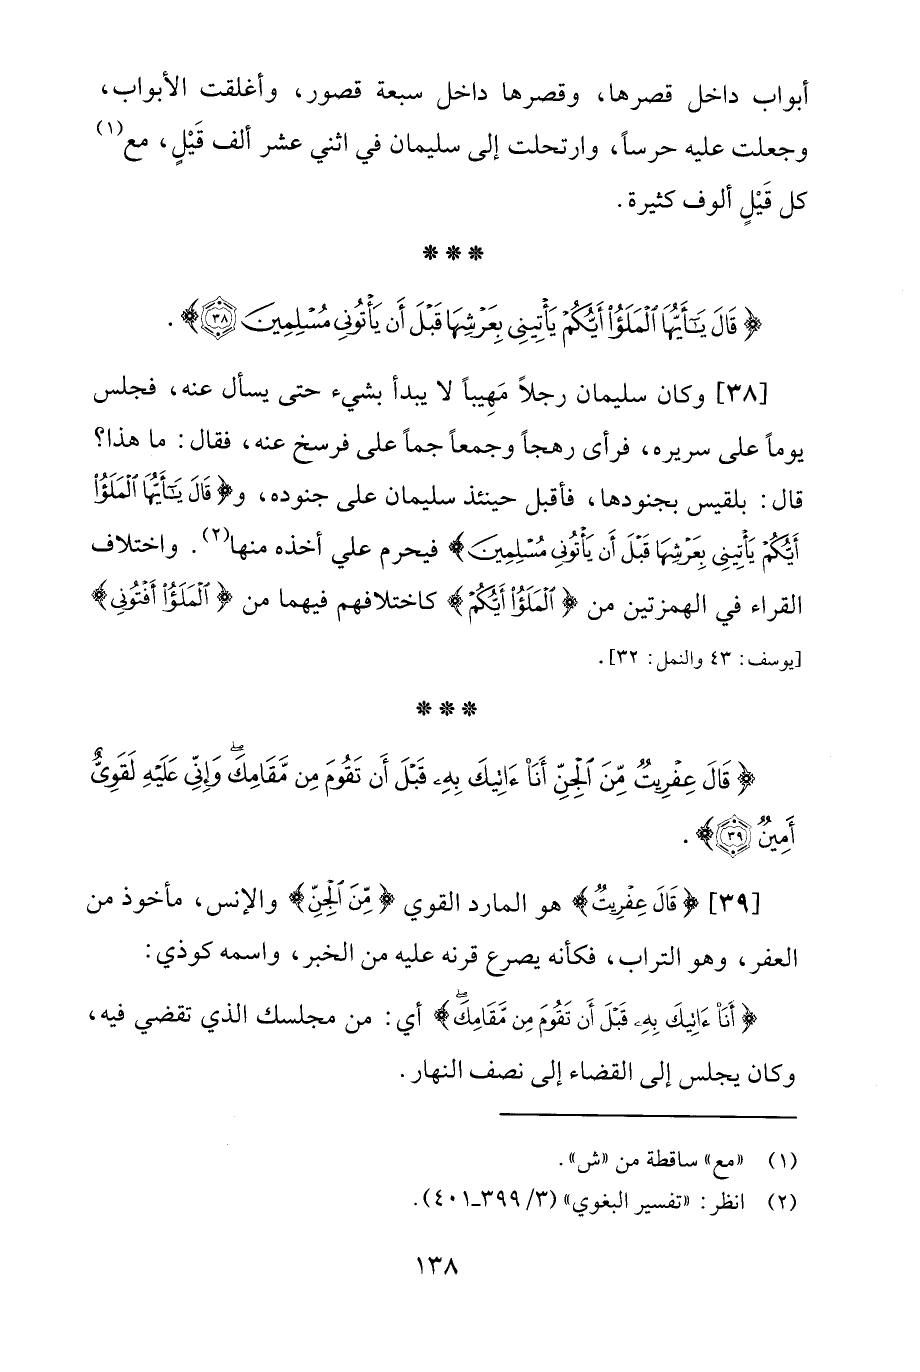 أبواب داخل قصرها، وقصرها داخل سبعة قصور، وأغلقت الأبواب،
وجعلت عليه حرساً، وارتحلت إلى سليمان في اثني عشر ألف قَيْلٍ، مع(١)
كل قَيْلٍ ألوف كثيرة.
***
﴿قَالَ يَـٰٓأَيُّهَا ٱلْمَلَؤُا۟ أَيُّكُمْ يَأْتِينِى بِعَرْشِهَا قَبْلَ أَن يَأْتُونِى مُسْلِمِينَ ٣٨﴾.
[٣٨] وكان سليمان رجلاً مَهِيباً لا يبدأ بشيء حتى يسأل عنه، فجلس
يوماً على سريره، فرأى رهجاً وجمعاً جماً على فرسخ عنه، فقال: ما هذا؟
قال: بلقيس بجنودها، فأقبل حينئذ سليمان على جنوده، و﴿قَالَ يَـٰٓأَيُّهَا ٱلْمَلَؤُا۟
أَيُّكُمْ يَأْتِينِى بِعَرْشِهَا قَبْلَ أَن يَأْتُونِى مُسْلِمِينَ﴾ فيحرم علي أخذه منها(٢). واختلاف
القراء في الهمزتين من ﴿ٱلْمَلَؤُا۟ أَيُّكُمْ﴾ كاختلافهم فيهما من ﴿ٱلْمَلَؤُا۟ أَفْتُونِى﴾
[يوسف: ٤٣ والنمل: ٣٢].
***
﴿قَالَ عِفْرِيتٌ مِّنَ ٱلْجِنِّ أَنَا۠ ءَاتِيكَ بِهِۦ قَبْلَ أَن تَقُومَ مِن مَّقَامِكَ ۖ وَإِنِّى عَلَيْهِ لَقَوِىٌّ
أَمِينٌ ٣٩﴾.
[٣٩] ﴿قَالَ عِفْرِيتٌ﴾ هو المارد القوي ﴿مِّنَ ٱلْجِنِّ﴾ والإنس، مأخوذ من
العفر، وهو التراب، فكأنه يصرع قرنه عليه من الخبر، واسمه كوذي:
﴿أَنَا۠ ءَاتِيكَ بِهِۦ قَبْلَ أَن تَقُومَ مِن مَّقَامِكَ ۖ﴾ أي: من مجلسك الذي تقضي فيه،
وكان يجلس إلى القضاء إلى نصف النهار.
(١) «مع» ساقطة من «ش».
(٢) انظر: «تفسير البغوي» (٣/ ٣٩٩ـ٤٠١).
١٣٨